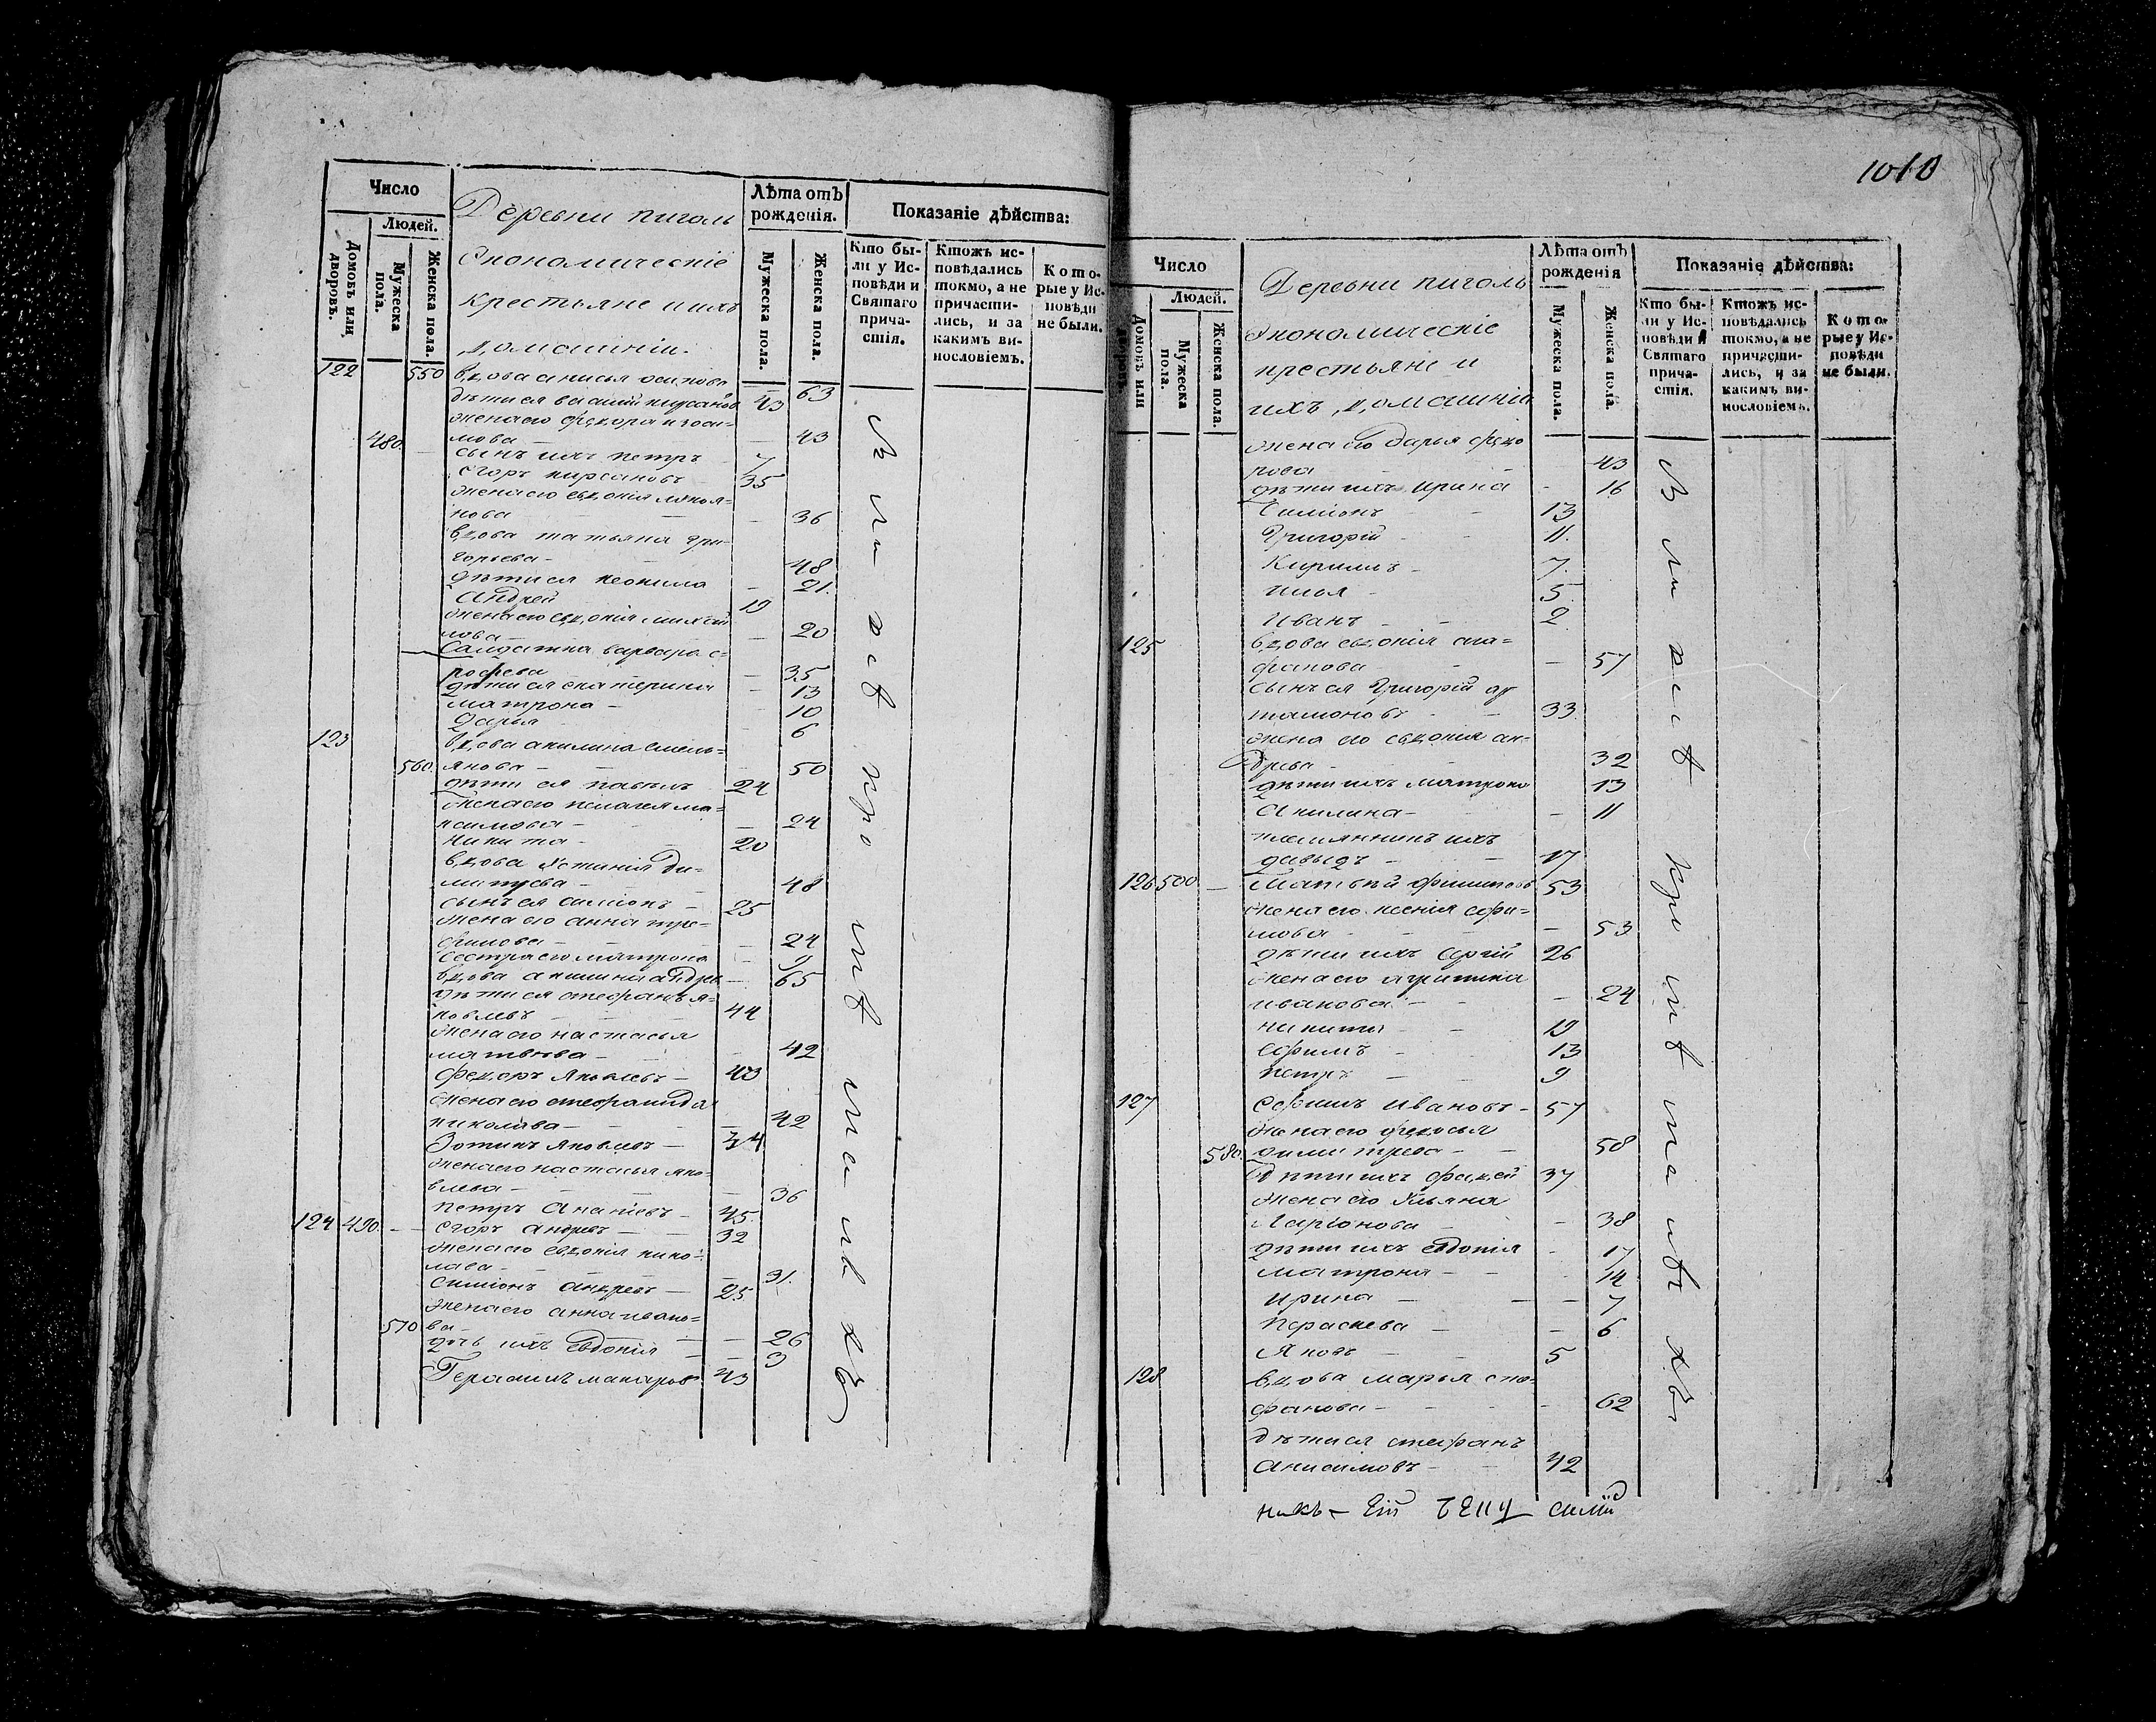 Число
Людей.
Домовъ или дворовъ.
Мужеска пола.
Женска пола.
Деревни пиголь
Экономическіе
крестьяне и ихъ
домашніи.
Лѣта отъ рожденія.
Мужеска пола.
Женска пола.
Показаніе дѣйства:
Кто бы-
ли у Ис-
повѣди и
Святаго
прича-
стія.
Ктожъ ис-
повѣдались
токмо, а не
причасти-
лись, и за
какимъ ви-
нословіемъ.
Кото-
рые у Ис-
повѣди
не были.
122 550 вдова анисья осипова 63
дѣти ея василій кирсановъ 43
жена его федора
мова — 43
480. сынъ ихъ петръ 7
егоръ кирсановъ 35
жена его евдокія
нова — 36
вдова татьяна гри-
горьева — 48
дѣти ея неонила 21.
Андрей 19
жена его евдокія михай
лова — 20
Салдатка варвара е-
рофеева 35
дѣти ея екатерина 13
матрона — 10
Дарья 6
123 вдова акилина емель-
560. янова — 50
дѣти ея павелъ 24
жена его пелагея ма-
ксимова — 24
никита — 20
вдова Устинія ди-
митрева — 48
сынъ ея симіонъ — 25
жена его анна тро-
фимова — 24
сестра его матрона 9
вдова акилина андрев 65
дѣти ея стефанъ я-
ковлевъ — 44
жена его настасья
матвѣева — 42
федоръ яковлевъ — 43
жена его стефанида
николаева — 42
Зотикъ яковлевъ — 34
жена его настасья яко-
влева — 36
петръ Ананіевъ — 45.
124 490. егоръ андревъ — 32
жена его евдокія нико-
лаева — 31.
симіонъ андревъ — 25
жена его анна ивано-
570 ва — 26
дочь ихъ евдокія — 3
Герасимъ макаровъ 43
1010
Число
Людей.
Домовъ или дворовъ.
Мужеска пола.
Женска пола.
Деревни пиголь
Экономическіе
крестьяне и
ихъ домашніи
Лѣта отъ рожденія
Мужеска пола.
Женска пола.
Показаніе дѣйства:
Кто бы-
ли у Ис-
повѣди и
Святаго
прича-
стія.
Ктожъ ис-
повѣдались
токмо, а не
причасти-
лись, и за
какимъ ви-
нословіемъ.
Кото-
рые у Ис-
повѣди
не были.
жена его дарья федо
рова 43
дѣти ихъ Ирина 16
Симіонъ 13
Григорій 11.
Кирилъ — 7.
илья — 5
Иванъ 2
125 вдова евдокія ага-
фонова — 57
сынъ ея Григорій ар
тамоновъ 33.
жена его евдокія ан-
древа — 32
дѣти ихъ матрона 13
Акилина — 11
племянникъ ихъ
давыдъ — 17
126 500 — Матвѣй филиповъ 53
жена его ксенія ефи-
мова 53
дѣти ихъ сергій 26
жена его агрипина
иванова — 24
никита 19
ефимъ 13
петръ 9
127 Ефимъ ивановъ — 57
жена его федосья
580. димитрева — 58
дѣти ихъ фадей 37
жена его Ульяна
Ларіонова 38
дѣти ихъ евдокія 17
матрона — 14
ирина — 7
Параскева — 6
Яковъ — 5
128 вдова марья сте-
фанова — 62
дѣти ея стефанъ
анисимовъ — 42